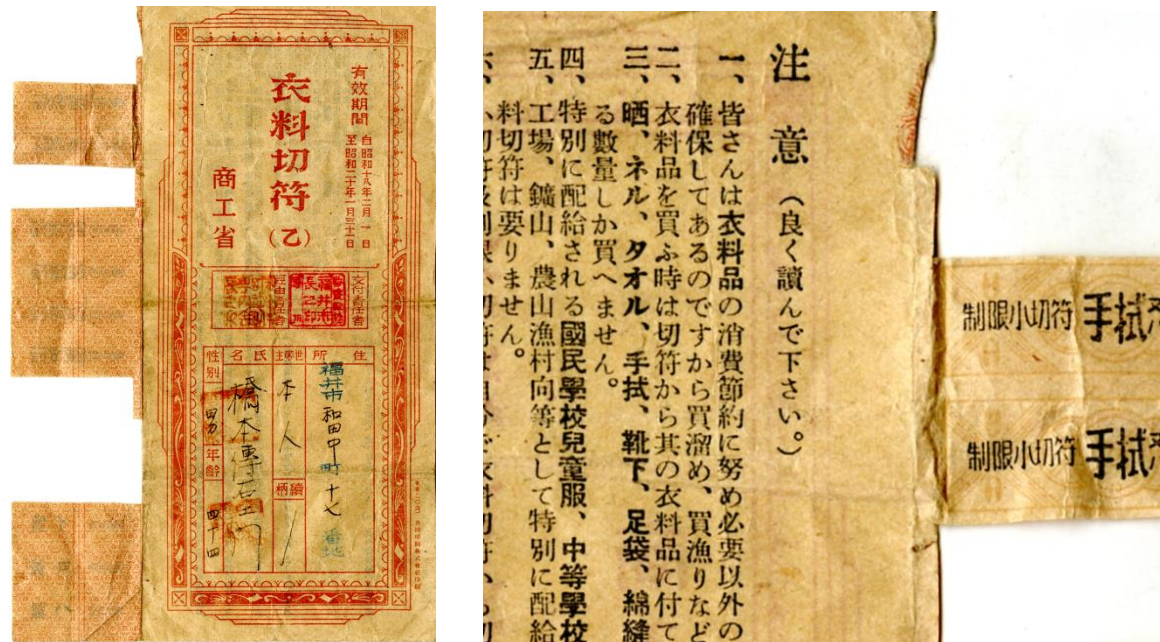 有效期間
自昭和十八年二月一日
至昭和二十年一月三十一日
衣料切符(乙)
商工省
交付責任者
經由責任者
住所
福井市和田中町十七番地
世帶主
本人
續柄
氏名
橋本傳右エ門
性別
男
年齡
四十四
注意(良く讀んで下さい。)
一、皆さんは衣料品の消費節約に努め必要以外の
確保してあるのですから買溜め、買漁りなど
二、衣料品を買ふ時は切符から其の衣料品に付て
三、晒、ネル、タオル、手拭、靴下、足袋、綿縫
る數量しか買へません。
四、特別に配給される國民學校兒童服、中等學校
五、工場、鑛山、農山漁村向等として特別に配給
料切符は要りません。
制限小切符 手拭
制限小切符 手拭